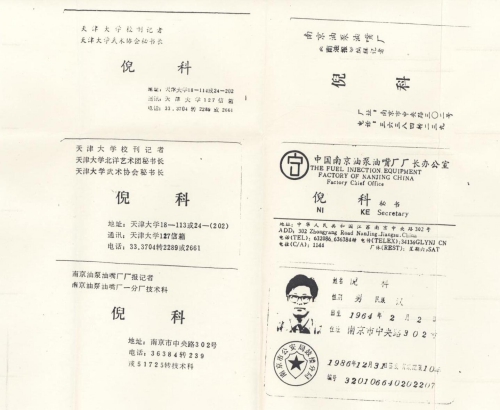 天津大学校刊记者
天津大学武术协会秘书长
倪 科
地址：天津大学18-113或24-202
通讯：天津大学127信箱
电话：33.3704转2289或2661
天津大学校刊记者
天津大学北洋艺术团秘书长
天津大学武术协会秘书长
倪 科
地址：天津大学18-113或24-(202)
通讯：天津大学127信箱
电话：33,3704转2289或2661
南京油泵油嘴厂厂报记者
南京油泵油嘴厂一分厂技术科
倪 科
地址：南京市中央路302号
电话：36384转239
或51725转技术科
南京油泵油嘴厂
倪 科
厂址：南京市中央路三〇二号
电话：三六三八四转二三九
宁
中国南京油泵油嘴厂厂长办公室
THE FUEL INJECTION EQUIPMENT
FACTORY OF NANJING CHINA
Factory Chief Office
倪 科 秘书
NI KE Secretary
地址：中华人民共和国江苏南京中央路302号
ADD: 302 Zhongyang Road Nanjing, Jiangsu, China
电话(TEL): 632086, 636384转 电传(TELEX): 34136GLYNJ CN
电挂(CA): 1544 厂休(REST): 星期六, SAT
姓名 倪科
性别 男 民族 汉
出生 1964年2月2日
住址 南京市中央路302号
1986年12月31日
编号 320106640202207
南京市公安局鼓楼分局